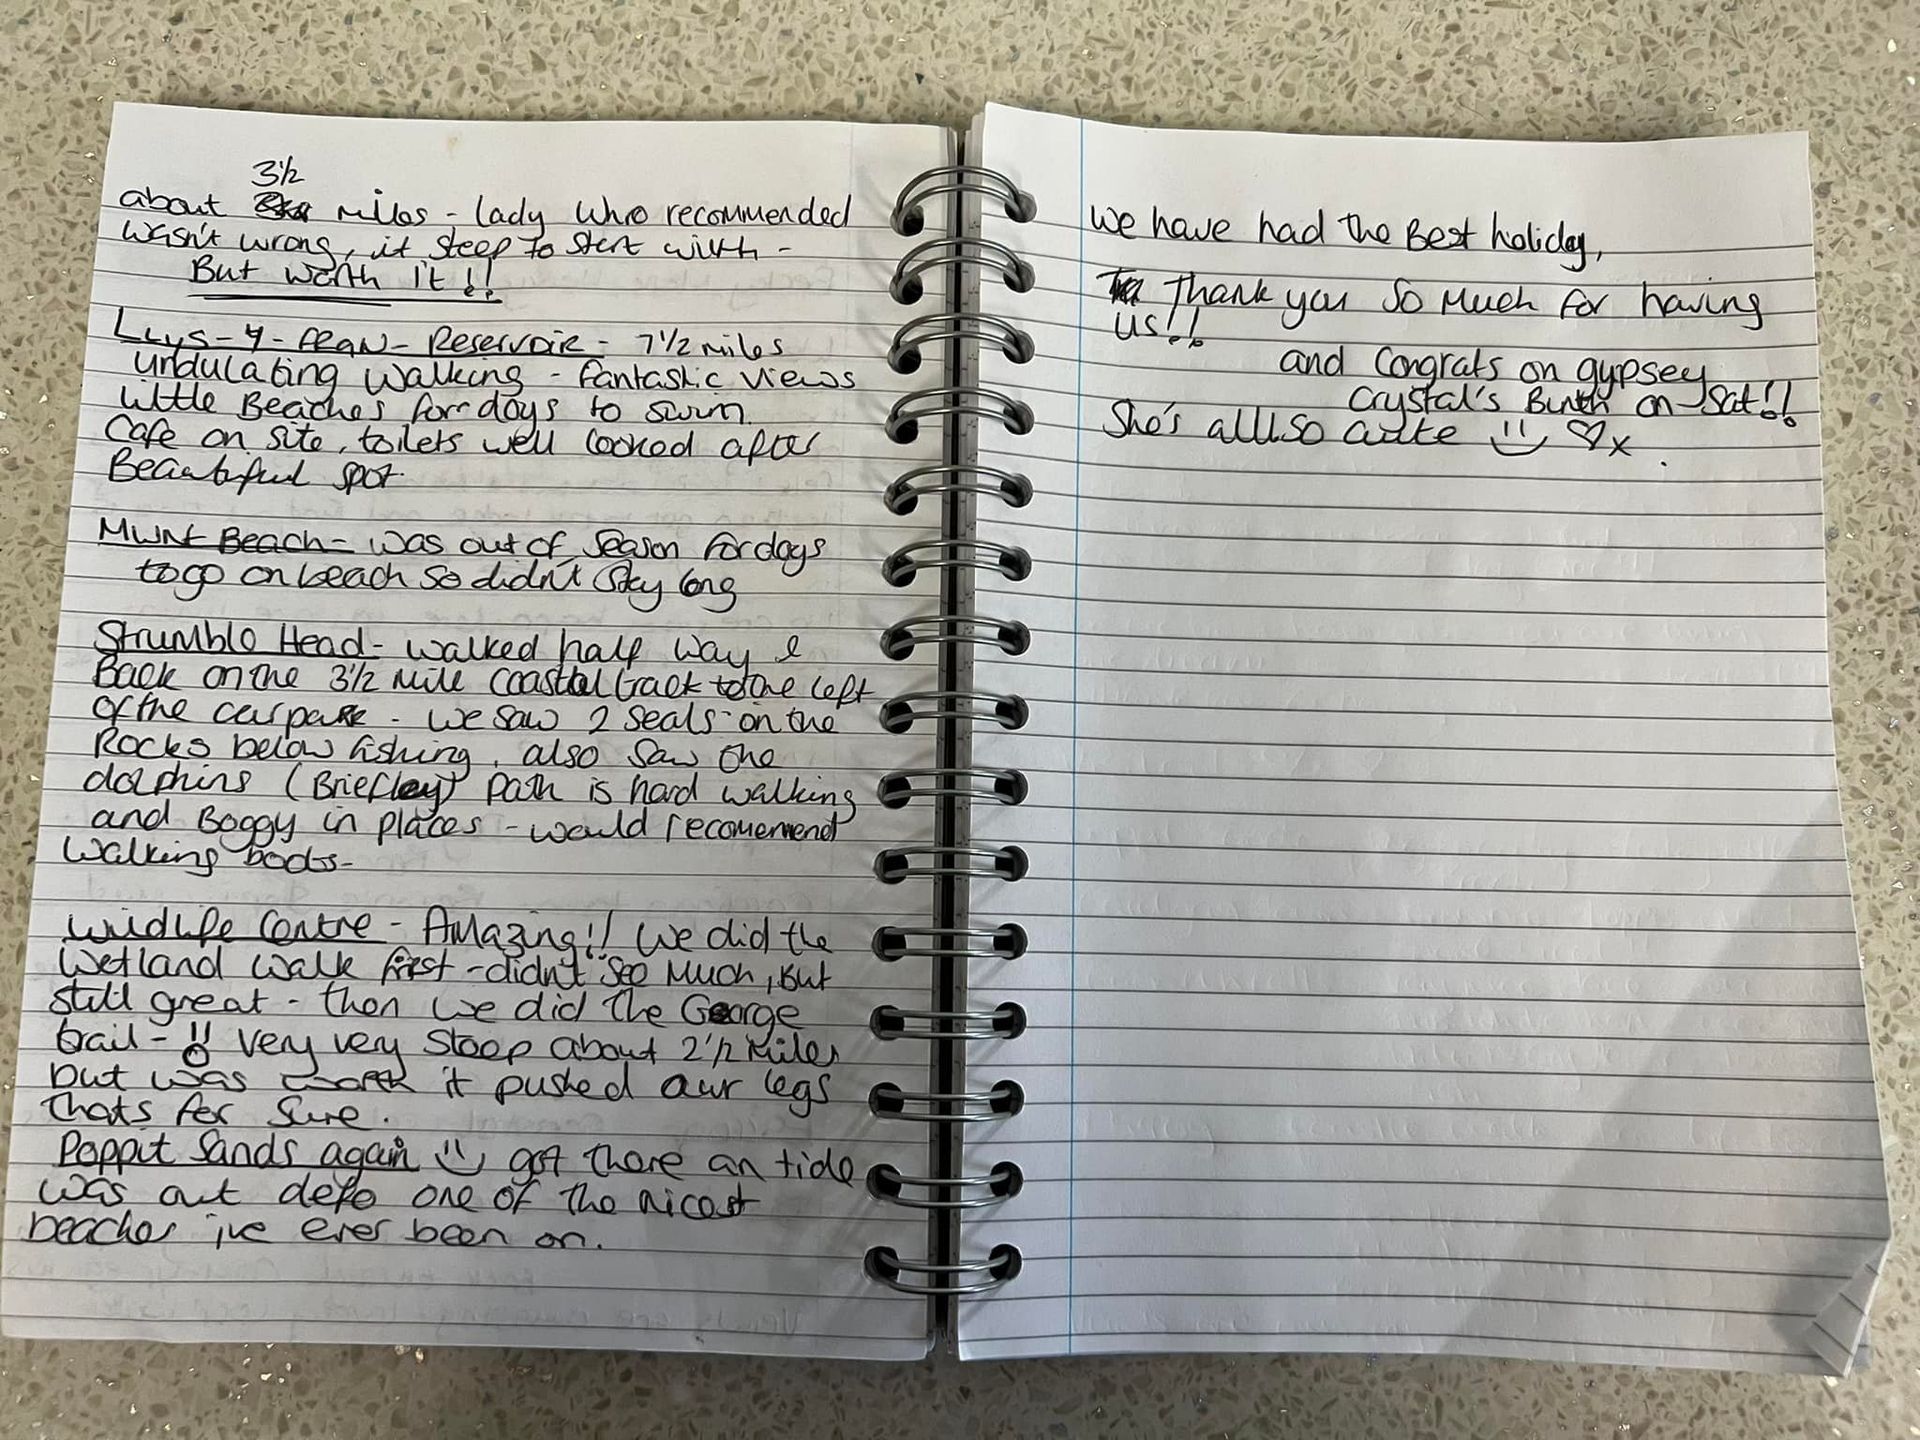 3½
about miles - lady who recommended
wasn't wrong, it steep to start with -
But worth it!!
Llys-y-fran- Reservoir - 7½ miles
undulating walking - fantastic views
little Beaches for dogs to swim.
Cafe on site, toilets well looked after
Beautiful spot.
Mwnt Beach - was out of season for dogs
to go on beach so didn't stay long
Strumble Head - walked half way &
Back on the 3½ mile coastal track to the left
of the carpark - we saw 2 seals on the
Rocks below fishing, also saw the
dolphins (Briefley) Path is hard walking
and Boggy in places - would recomemend
walking boots-
Wildlife Centre - Amazing!! We did the
Wetland walk first - didn't see much, But
still great - then we did the George
trail - !! very very steep about 2½ miles
but was worth it pushed our legs
thats for sure.
Poppit Sands again got there an tide
was out defo one of the nicest
beaches ive ever been on.
We have had the Best holiday,
Thank you so much for having
us!!
and Congrats on gypsey
Crystal's Birth on Sat!!
She's alllso cute x